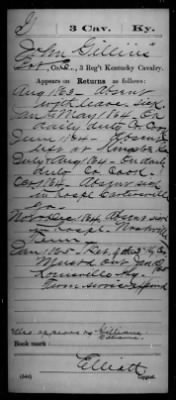 G | 3 Cav. | Ky.
John Gillins
Pvt, Co. E, 3 Reg't Kentucky Cavalry.
Appears on Returns as follows:
Aug 1863 - Absent
with leave sick
Jan to May 1864 - On
daily duty Co. Cook
June 1864 - Absent
left at
July & Aug 1864 - On daily
duty Co Cook.
Oct 1864 Absent sick
in hospl Cartersville
Ga
Nov & Dec 1864 Absent sick
in hospl. Nashville
Tenn
Jan 1865
Must'd out Jan
Louisville Ky.
Term service expired
Also appears as Gilliam
Book mark:
Elliott
(546) Copyist.